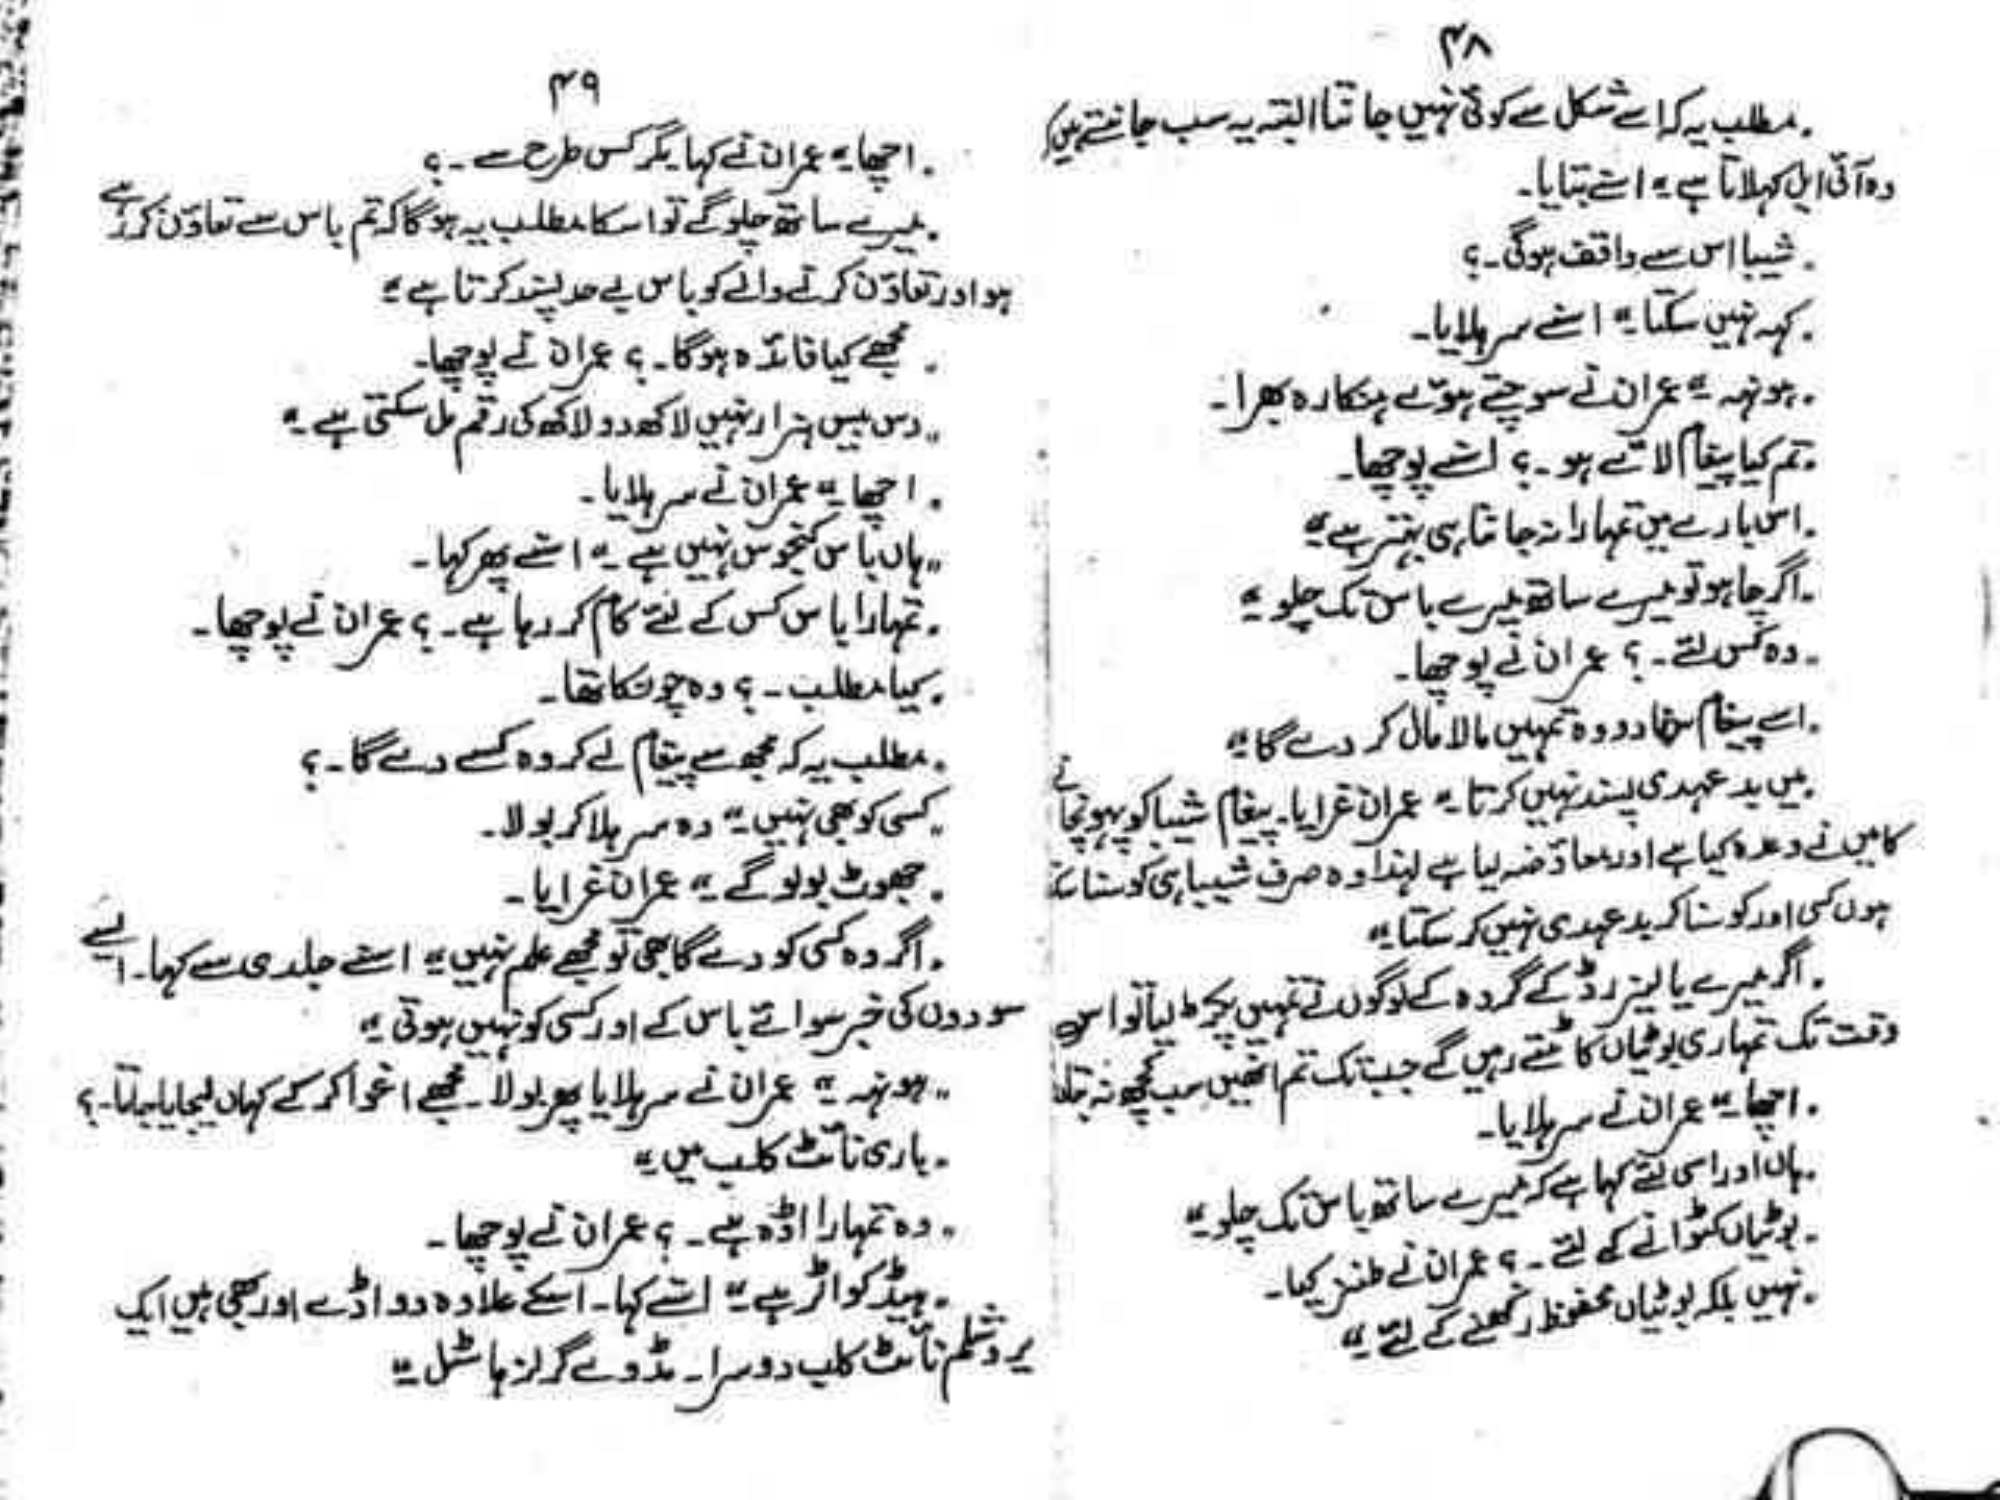 ۴۸
۔ مطلب یہ کہ اسے شکل سے کوئی نہیں جانتا البتہ یہ سب جانتے ہیں
وہ آئی ایل کہلاتا ہے" اسنے بتایا۔
۔ شیبا اس سے واقف ہوگی۔؟
۔ کہہ نہیں سکتا" اسنے سر ہلایا۔
۔ ہونہہ" عمران نے سوچتے ہوئے ہنکارہ بھرا۔
۔ تم کیا پیغام لائے ہو۔؟ اسنے پوچھا۔
۔ اس بارے میں تمہارا نہ جاننا ہی بہتر ہے"
۔ اگر چاہو تو میرے ساتھ میرے باس تک چلو"
۔ وہ کس لئے۔؟ عمران نے پوچھا۔
۔ اسے پیغام سنا دو وہ تمہیں مالا مال کر دے گا"
۔ میں بد عہدی پسند نہیں کرتا" عمران غرایا۔ پیغام شیبا کو پہونچانے
کا میں نے وعدہ کیا ہے اور معاوضہ لیا ہے لہذا وہ صرف شیبا ہی کو سنا سکتا
ہوں کسی اور کو سنا کر بد عہدی نہیں کر سکتا"
۔ اگر میرے یا لیزرڈ کے گروہ کے لوگوں نے تمہیں پکڑ لیا تو اس
وقت تک تمہاری بوٹیاں کاٹتے رہیں گے جب تک تم انھیں سب کچھ نہ
۔ اچھا" عمران نے سر ہلایا۔
۔ ہاں اور اسی لئے کہا ہے کہ میرے ساتھ باس تک چلو"
۔ بوٹیاں کٹوانے کے لئے۔؟ عمران نے طنز کیا۔
۔ نہیں بلکہ بوٹیاں محفوظ رکھنے کے لئے"
۴۹
۔ اچھا" عمران نے کہا مگر کس طرح سے۔؟
۔ میرے ساتھ چلو گے تو اسکا مطلب یہ ہوگا کہ تم باس سے تعاون کر رہے
ہو اور تعاون کرنے والے کو باس بے حد پسند کرتا ہے"
۔ مجھے کیا فائدہ ہوگا۔؟ عمران نے پوچھا۔
"دس بیس ہزار نہیں لاکھ دو لاکھ کی رقم مل سکتی ہے"
۔ اچھا" عمران نے سر ہلایا۔
"ہاں باس کنجوس نہیں ہے" اسنے پھر کہا۔
۔ تمہارا باس کس کے لئے کام کر رہا ہے۔؟ عمران نے پوچھا۔
۔ کیا مطلب۔؟ وہ چونکا تھا۔
۔ مطلب یہ کہ مجھ سے پیغام لے کر وہ کسے دے گا۔؟
"کسی کو بھی نہیں" وہ سر ہلا کر بولا۔
۔ جھوٹ بولو گے" عمران غرایا۔
۔ اگر وہ کسی کو دے گا بھی تو مجھے علم نہیں" اسنے جلدی سے کہا۔ ایسے
سودوں کی خبر سوائے باس کے اور کسی کو نہیں ہوتی"
"ہونہہ" عمران نے سر ہلایا پھر بولا۔ مجھے اغوا کر کے کہاں لیجایا جاتا۔؟
۔ باری نائٹ کلب میں"
۔ وہ تمہارا اڈہ ہے۔؟ عمران نے پوچھا۔
۔ ہیڈ کواٹر ہے" اسنے کہا۔ اسکے علاوہ دو اڈے اور بھی ہیں ایک
یروشلم نائٹ کلب دوسرا۔ مڈوے گرلز ہاسٹل"